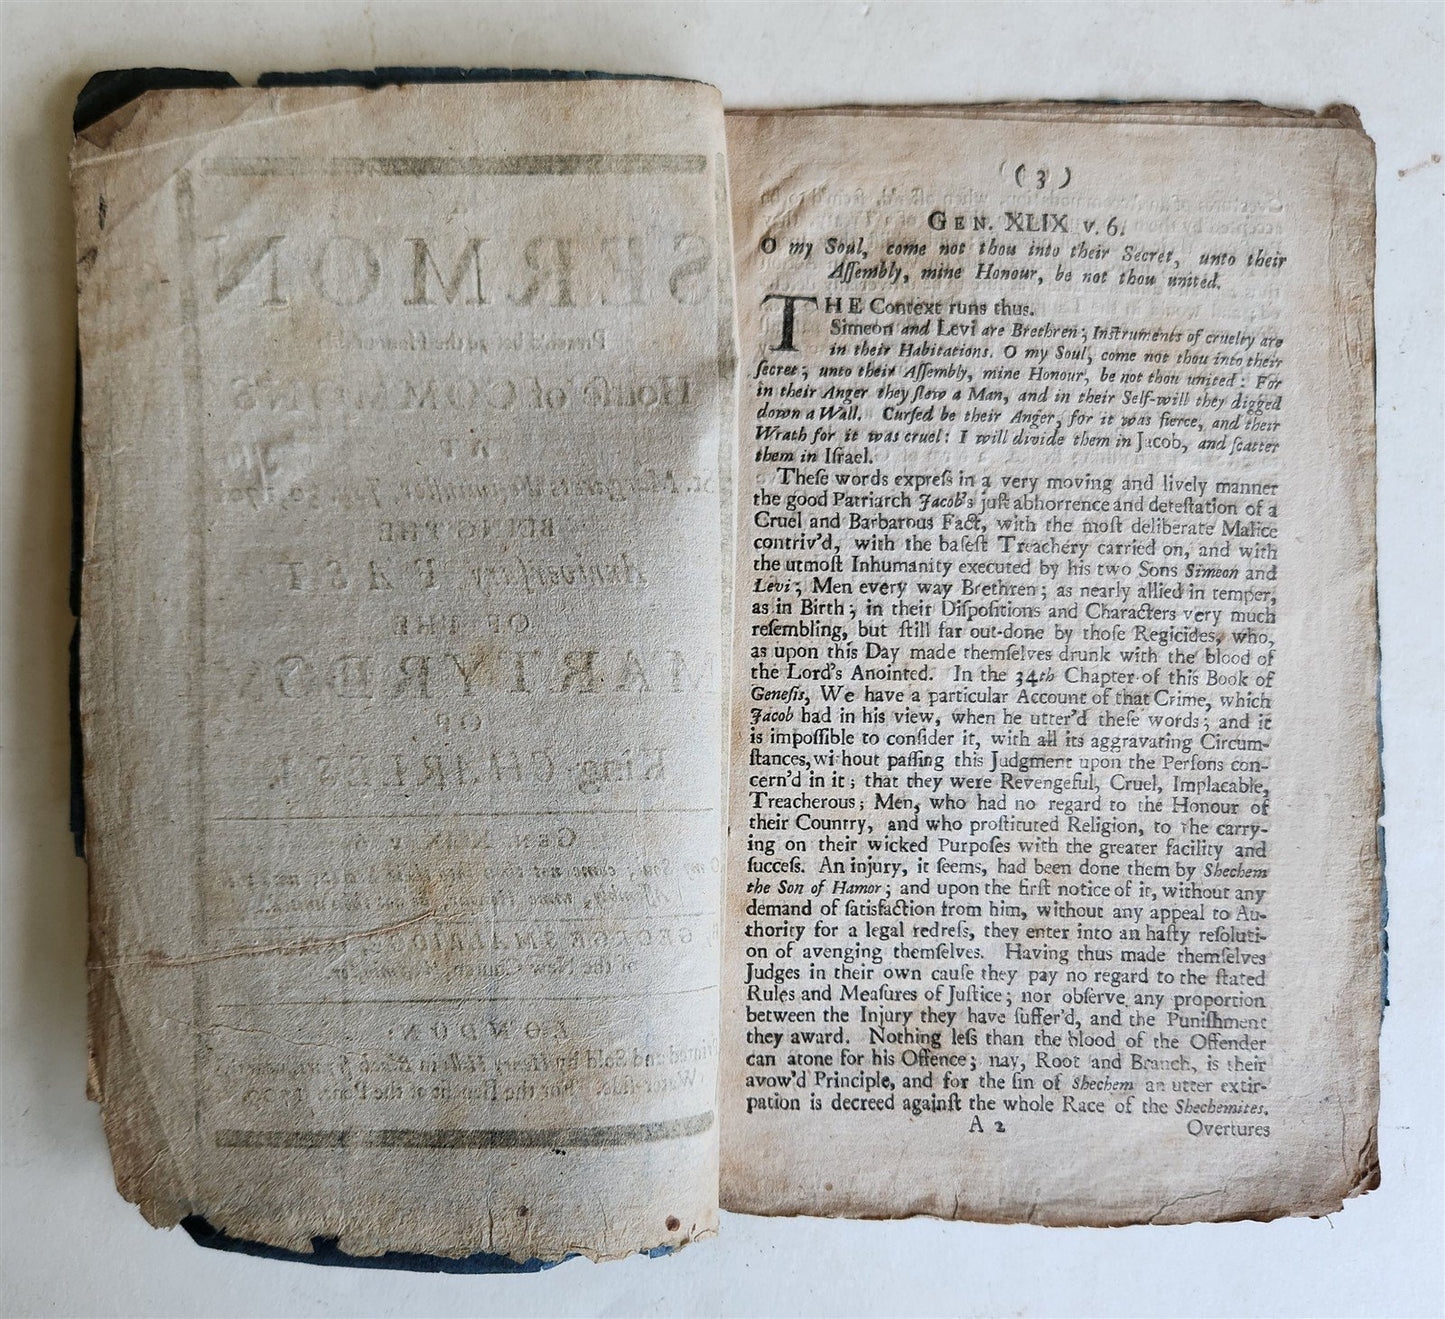 SERMON
House of COMMONS
AT
BEING THE
Anniversary FAST
OF THE
MARTYRDOM
OF
King CHARLES I.
GEN. XLIX. v. 6.
GEORGE SMALRIDGE
LONDON:
( 3 )
GEN. XLIX v. 6.
O my Soul, come not thou into their Secret, unto their
Aſſembly, mine Honour, be not thou united.
THE Context runs thus.
Simeon and Levi are Brethren; Inſtruments of cruelty are
in their Habitations. O my Soul, come not thou into their
ſecret; unto their Aſſembly, mine Honour, be not thou united: For
in their Anger they ſlew a Man, and in their Self-will they digged
down a Wall. Curſed be their Anger, for it was fierce, and their
Wrath for it was cruel: I will divide them in Jacob, and ſcatter
them in Iſrael.
Theſe words expreſs in a very moving and lively manner
the good Patriarch Jacob's juſt abhorrence and deteſtation of a
Cruel and Barbarous Fact, with the moſt deliberate Malice
contriv'd, with the baſeſt Treachery carried on, and with
the utmoſt Inhumanity executed by his two Sons Simeon and
Levi; Men every way Brethren; as nearly allied in temper,
as in Birth; in their Diſpoſitions and Characters very much
reſembling, but ſtill far out-done by thoſe Regicides, who,
as upon this Day made themſelves drunk with the blood of
the Lord's Anointed. In the 34th Chapter of this Book of
Geneſis, We have a particular Account of that Crime, which
Jacob had in his view, when he utter'd theſe words; and it
is impoſſible to conſider it, with all its aggravating Circum-
ſtances, without paſſing this Judgment upon the Perſons con-
cern'd in it; that they were Revengeful, Cruel, Implacable,
Treacherous; Men, who had no regard to the Honour of
their Country, and who proſtituted Religion, to the carry-
ing on their wicked Purpoſes with the greater facility and
ſucceſs. An injury, it ſeems, had been done them by Shechem
the Son of Hamor; and upon the firſt notice of it, without any
demand of ſatisfaction from him, without any appeal to Au-
thority for a legal redreſs, they enter into an haſty reſoluti-
on of avenging themſelves. Having thus made themſelves
Judges in their own cauſe they pay no regard to the ſtated
Rules and Meaſures of Juſtice; nor obſerve any proportion
between the Injury they have ſuffer'd, and the Puniſhment
they award. Nothing leſs than the blood of the Offender
can atone for his Offence; nay, Root and Branch, is their
avow'd Principle, and for the ſin of Shechem an utter extir-
pation is decreed againſt the whole Race of the Shechemites.
A 2 Overtures